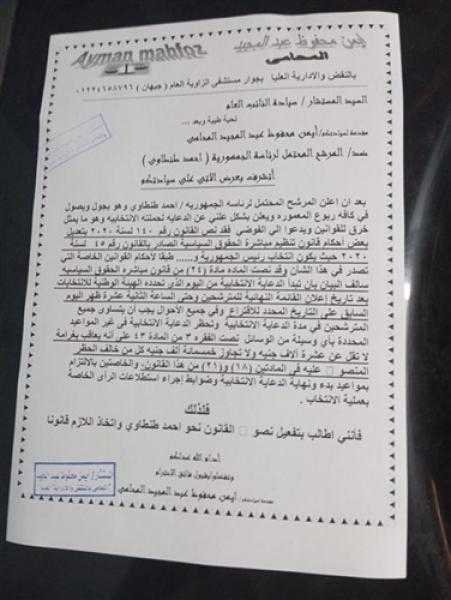 Ayman mahfoz
ايمن محفوظ عبد المجيد
المحامى
بالنقض والادارية العليا بجوار مستشفى الزاوية العام ( جيهان )
السيد المستشار / سيادة النائب العام
تحية طيبة وبعد ...
مقدمة لسيادتكم/ أيمن محفوظ عبد المجيد المحامي
ضد/ المرشح المحتمل لرئاسة الجمهورية ( احمد طنطاوي )
أتشرف بعرض الآتي على سيادتكم
بعد ان اعلن المرشح المحتمل لرئاسه الجمهوريه / احمد طنطاوي وهو يجول ويصول
في كافه ربوع المعموره ويعلن بشكل علني عن الدعايه لحملته الانتخابيه وهو ما يمثل
خرق للقوانين ويدعوا الي الفوضي فقد نص القانون رقم ١٤٠ لسنة ٢٠٢٠ بتعديل
بعض أحكام قانون تنظيم مباشرة الحقوق السياسية الصادر بالقانون رقم ٤٥ لسنة
٢٠٢٠ حيث يكون انتخاب رئيس الجمهورية و...... طبقا لاحكام القوانين الخاصة التي
تصدر في هذا الشأن وقد نصت الماده مادة (٢٤) من قانون مباشرة الحقوق السياسيه
سالف البيان بأن تبدأ الدعاية الانتخابية من اليوم الذي تحدده الهيئة الوطنية للانتخابات
بعد تاريخ إعلان القائمة النهائية للمترشحين وحتى الساعة الثانية عشرة ظهر اليوم
السابق على التاريخ المحدد للاقتراع وفي جميع الأحوال يجب أن يتساوى جميع
المترشحين في مدة الدعاية الانتخابية وتحظر الدعاية الانتخابية في غير المواعيد
المحددة بأي وسيلة من الوسائل. نصت الفقره ٣ من الماده ٤٣ علي أنه يعاقب بغرامة
لا تقل عن عشرة آلاف جنيه ولا تجاوز خمسمائة ألف جنيه كل من خالف الحظر
المنصو عليه في المادتين (١٨) و(٢١) من هذا القانون، والخاصتين بالالتزام
بمواعيد بدء ونهاية الدعاية الانتخابية وضوابط إجراء استطلاعات الرأى الخاصة
بعملية الانتخاب .
فلذلك
فأنني اطالب بتفعيل نصو القانون نحو احمد طنطاوي واتخاذ اللازم قانونا
أدام الله عدلكم
وتفضلوا بقبول فائق الاحترام
مقدمة لسيادتكم/ أيمن محفوظ عبد المجيد المحامي